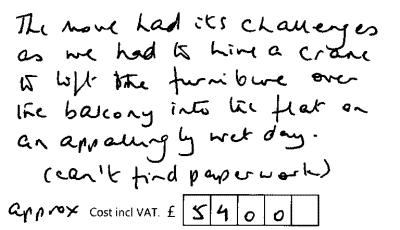 The move had its challenges
as we had to hire a crane
to lift the furniture over
the balcony into the flat on
an appallingly wet day.
(can't find paperwork)
approx Cost incl VAT. £ 5400